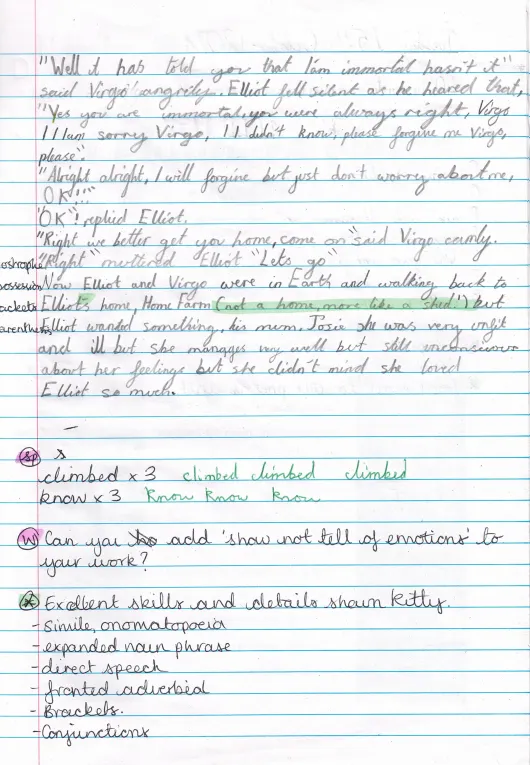 "Well it has told you that I'am immortal hasn't it"
said Virgo angrily. Elliot fell silent as he heared that,
"Yes you are immortal, you were always right, Virgo
I I am sorry Virgo, I I didn't know, please forgive me Virgo,
please".
"Alright alright, I will forgive but just don't worry about me,
OK"!!!
"OK"! replied Elliot.
"Right we better get you home, come on" said Virgo camly.
"Right" muttered Elliot "Lets go"
Now Elliot and Virgo were in Earth and walking back to
Elliot's home, Home Farm (not a home, more like a shed!) but
Elliot wanted something, his mum. Josie she was very unfit
and ill but she manages very well but still unconscious
about her feelings but she didn't mind she loved
Elliot so much.
ostrophe
possession
ackets
arenthesis
sp s
climbed x 3 climbed climbed climbed
know x 3 know know know
W Can you add 'show not tell of emotions' to
your work?
Excellent skills and details shown Kitty.
- Simile, onomatopoeia
- expanded noun phrase
- direct speech
- fronted adverbial
- Brackets.
- Conjunctions